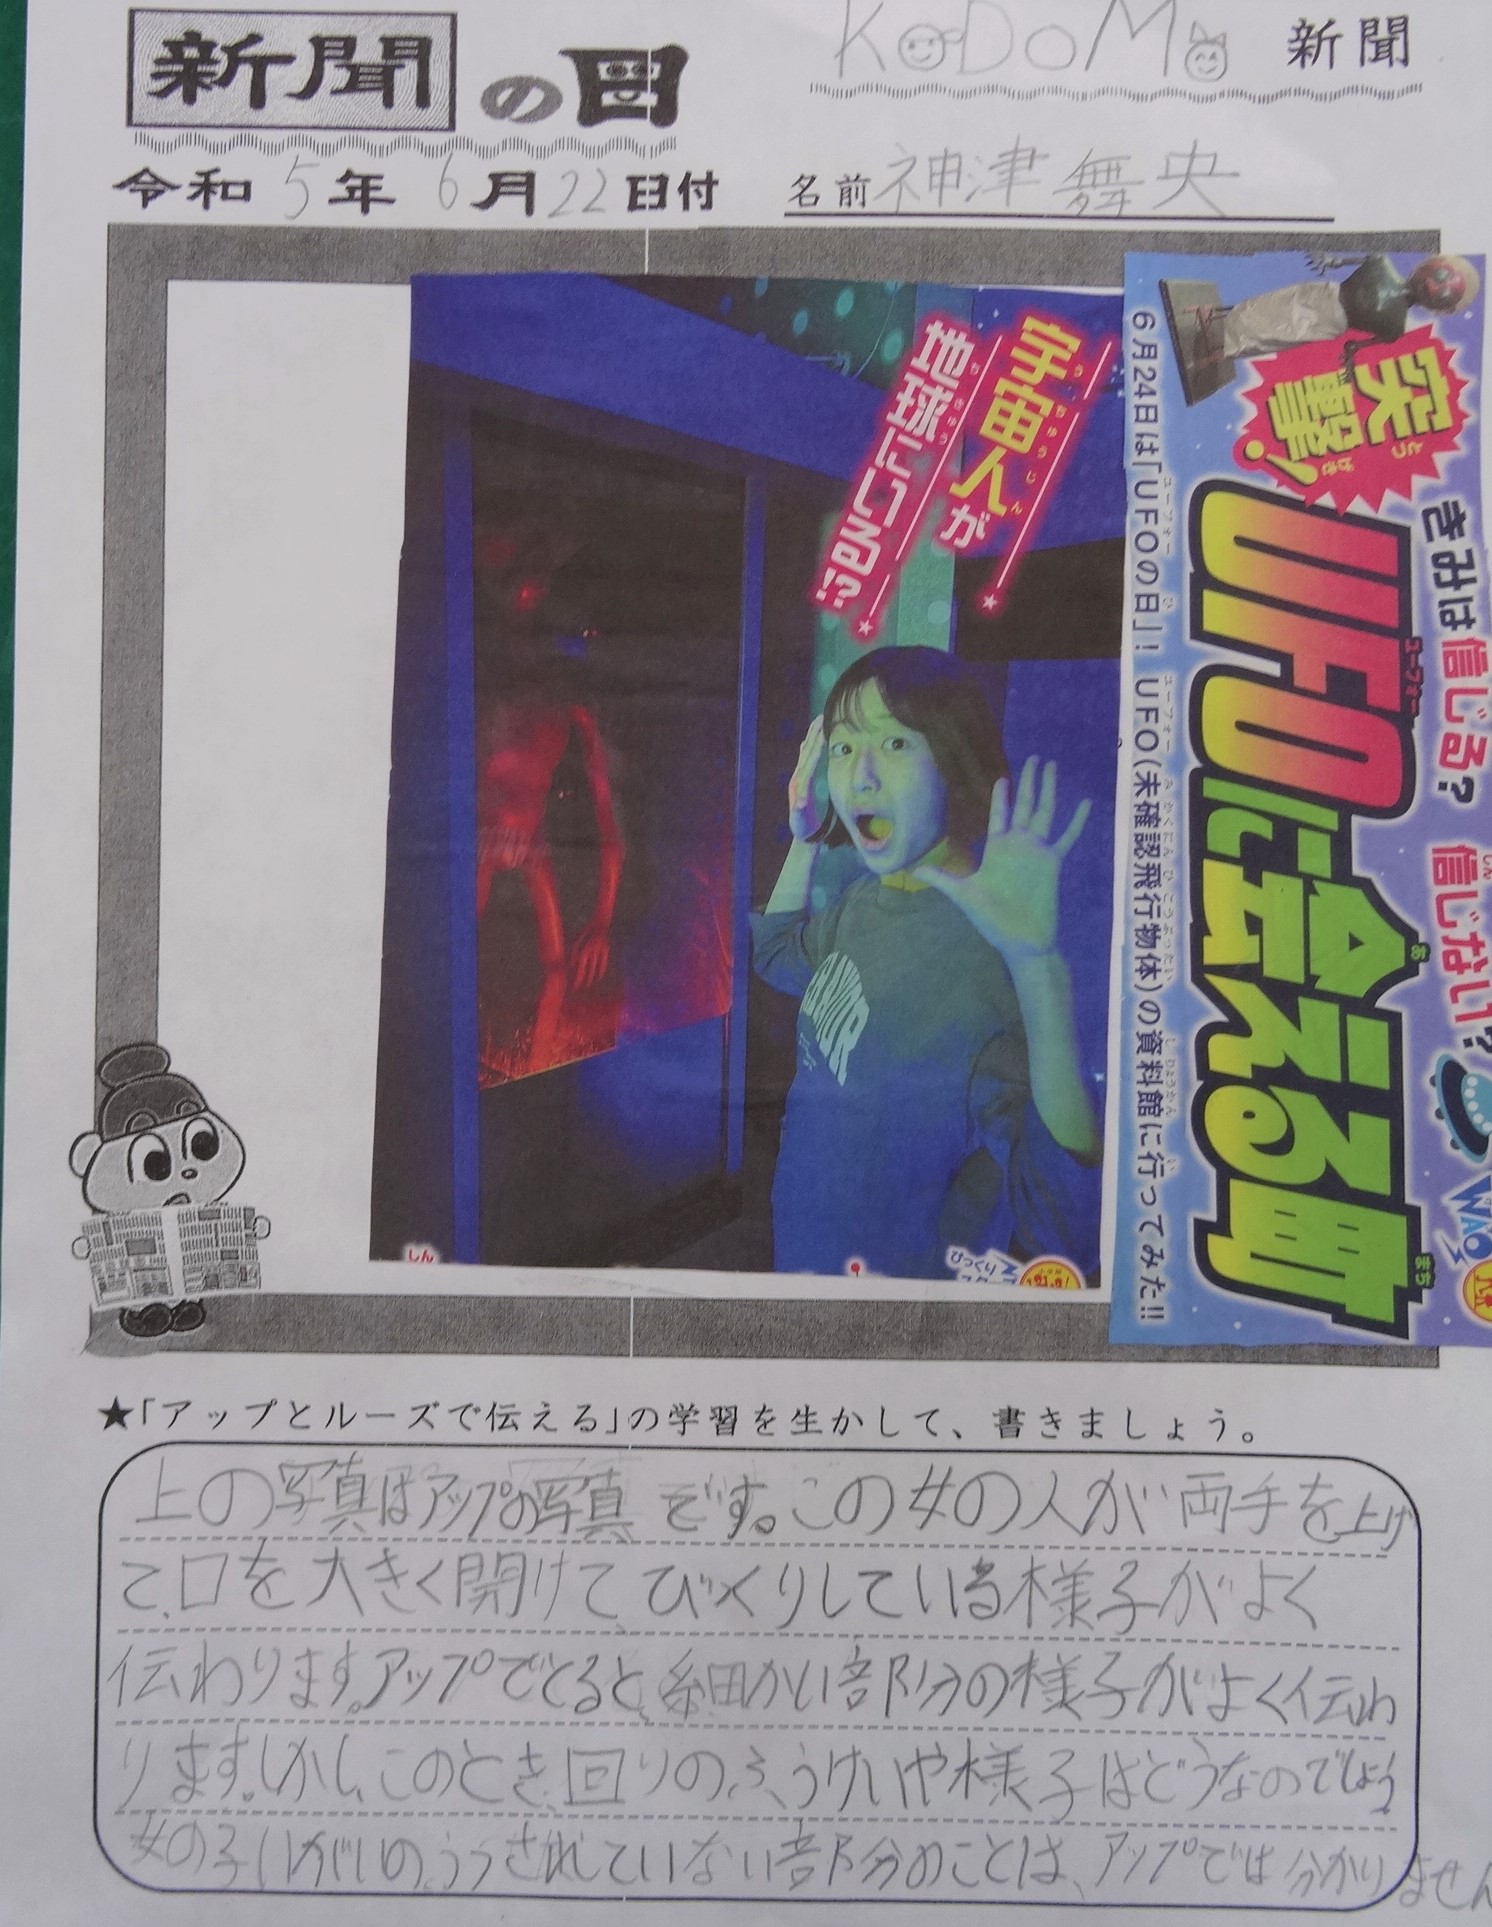 新聞の日
KoDoMo 新聞
令和5年6月22日付
名前 神津舞央
きみは信じる? 信じない?
突撃!
UFOに会える町
6月24日は「UFOの日」! UFO(未確認飛行物体)の資料館に行ってみた!!
宇宙人が
地球にいる!?
しん
びっくり
WAO
★「アップとルーズで伝える」の学習を生かして、書きましょう。
上の写真はアップの写真です。この女の人が両手を上げ
て、口を大きく開けて、びっくりしている様子がよく
伝わります。アップでとると、細かい部分の様子がよく伝わ
ります。しかし、このとき、回りのふうけいや様子はどうなのでしょう。
女の子いがいのうつされていない部分のことは、アップでは分かりません